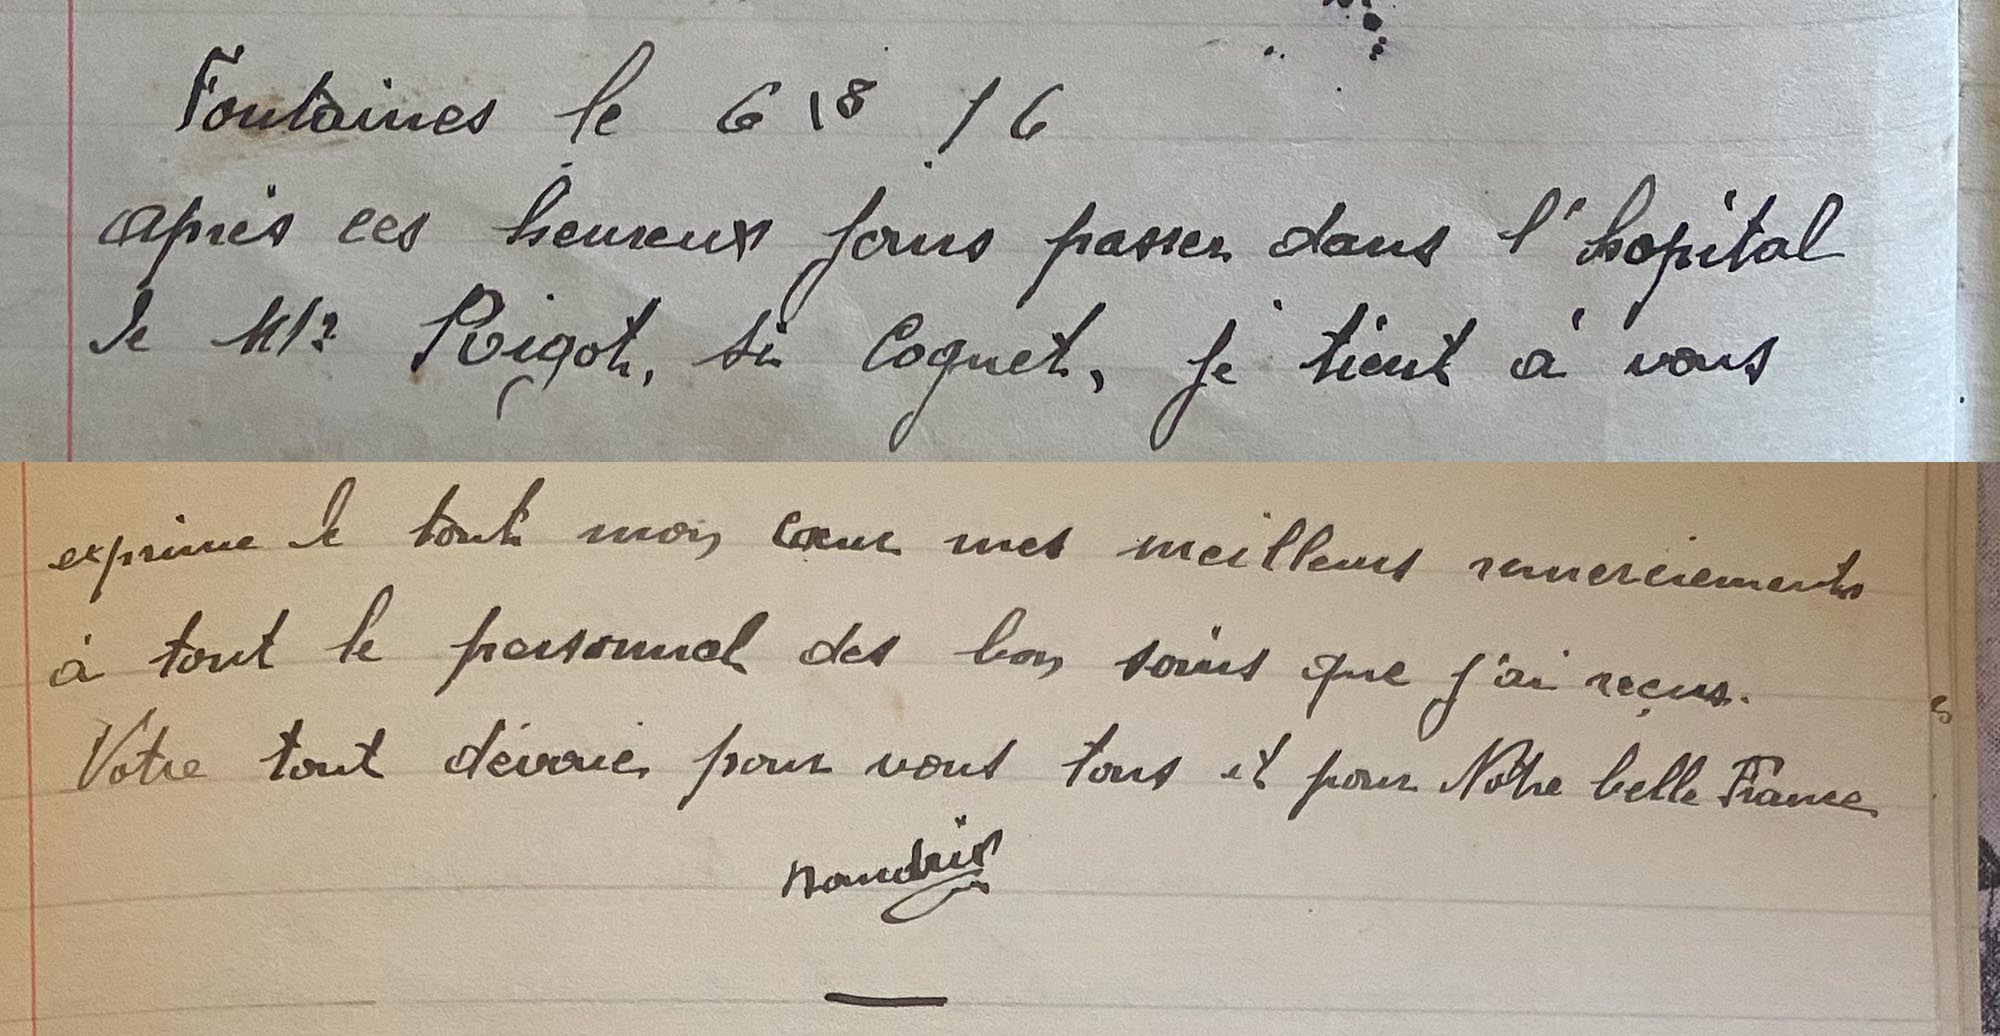 Fontaines le 6 \8 / 6
après ces heureux jours passer dans l'hopital
de Mr Roigot, si Coquet, je tient à vous
exprime de tout mon cœur mes meilleurs remerciements
à tout le personnel des bon soins que j'ai reçus.
Votre tout dévoué pour vous tous et pour Notre belle France